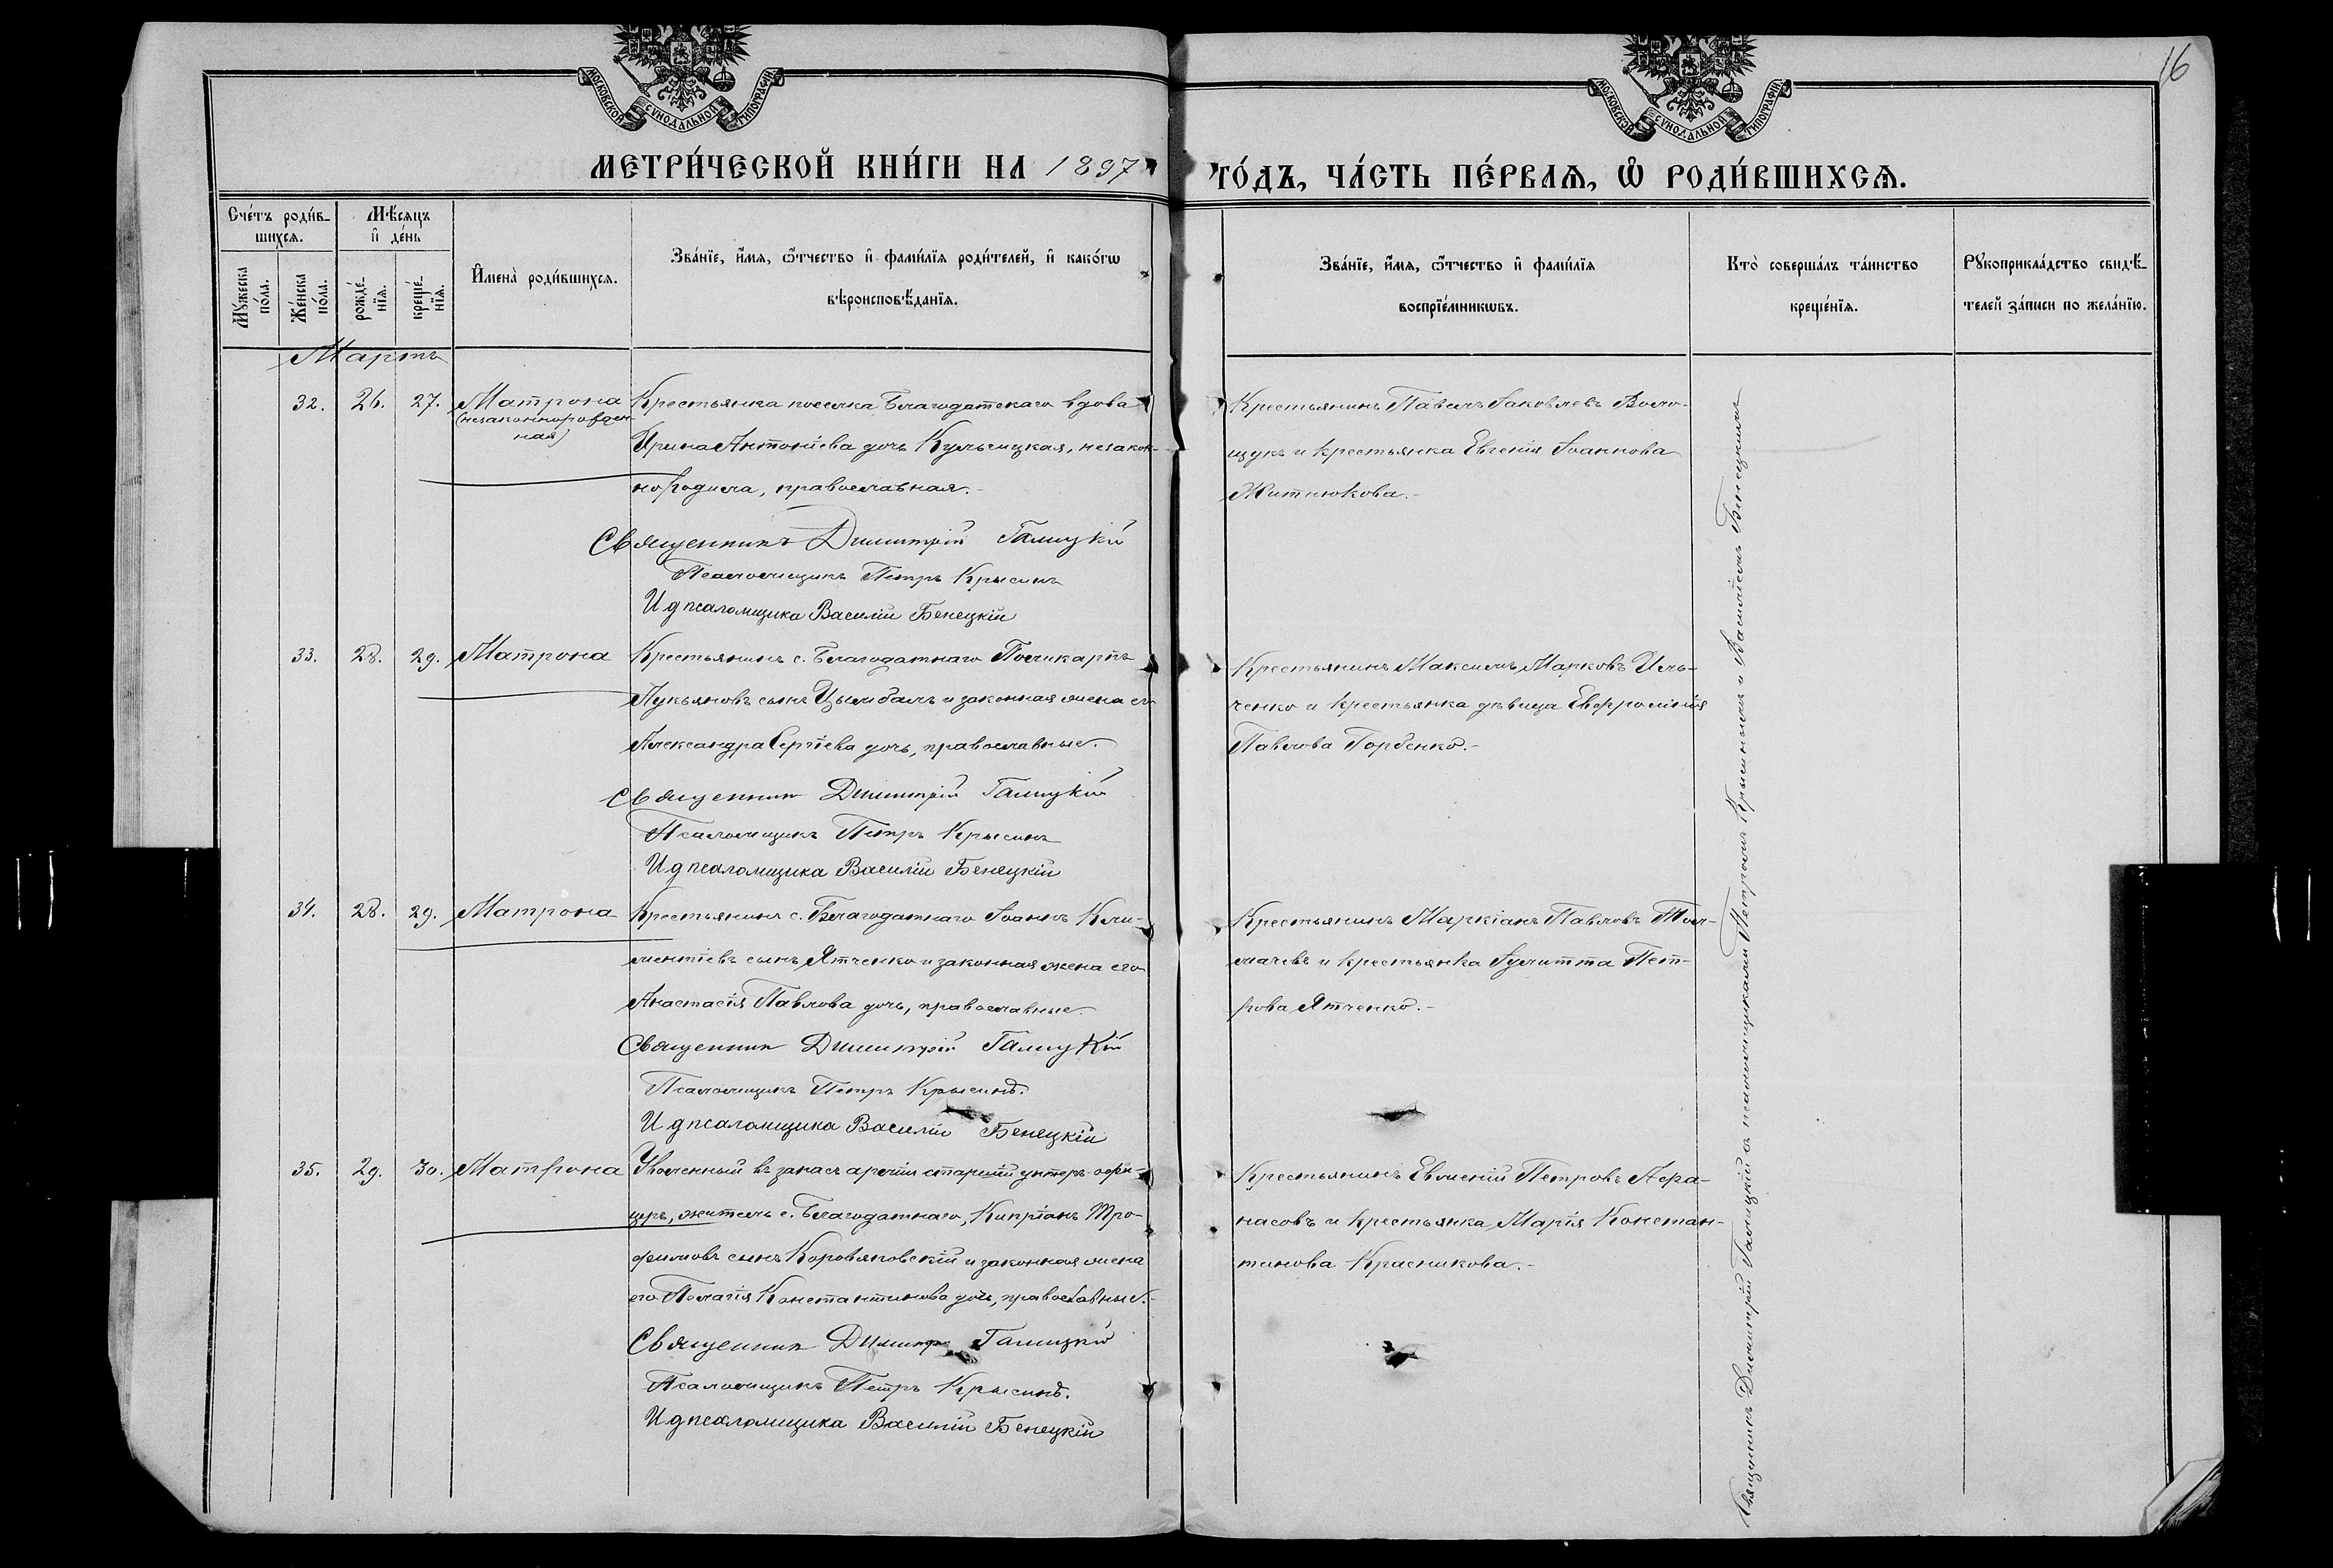 МОСКОВСКОЙ СѴНОДАЛЬНОЙ ТИПОГРАФІИ
МОСКОВСКОЙ СѴНОДАЛЬНОЙ ТИПОГРАФІИ
16
МЕТРИ́ЧЕСКОЙ КНИ́ГИ НА 1897
ГО́ДЪ, ЧА́СТЬ ПЕ́РВАѦ, Ѽ РОДИ́ВШИХСѦ.
Сче́тъ роди́в-
шихсѧ.
Мѣ́сяцъ
и҆ де́нь
Му́жеска
по́ла.
Же́нска
по́ла.
рожде́-
нїѧ.
креще́-
нїѧ.
И҆мена̀ роди́вшихсѧ.
Зва́нїе, и҆́мѧ, ѻ҆́тчество и҆ фами́лїѧ роди́телей, и҆ како́гѡ
вѣроисповѣ́данїѧ.
Зва́нїе, и҆́мѧ, ѻ҆́тчество и҆ фами́лїѧ
воспрїе́мникѡвъ.
Кто̀ соверша́лъ та́инство
креще́нїѧ.
Рꙋкоприкла́дство свидѣ́-
телей за́писи по жела́нїю.
Мартъ
32. 26. 27. Матрона
(незаконнорожден
ная)
Крестьянка поселка Благодатскаго вдова
Ирина Антоніева дочь Кульсицкая, незакон-
нородила, православная.-
Священникъ Димитрій Галицкій
Псаломщикъ Петръ Крысинъ
И д псаломщика Василій Бенецкій
Крестьянинъ Павелъ Іаковлевъ Воло-
щукъ и крестьянка Евгенія Іоаннова
Житнюкова.-
33. 28. 29. Матрона
Крестьянинъ с. Благодатнаго Поликарпъ
Лукьяновъ сынъ Цымбалъ и законная жена его
Александра Сергіева дочь, православные.
Священник Димитрій Галицкій
Псаломщикъ Петръ Крысинъ
И д псаломщика Василій Бенецкій
Крестьянинъ Максимъ Марковъ Иль-
ченко и крестьянка дѣвица Евфросинія
Павлова Горбенко.-
34. 28. 29. Матрона
Крестьянинъ с. Благодатнаго Іоаннъ Кли-
ментіевъ сынъ Ятченко и законная жена его
Анастасія Павлова дочь, православные.
Священник Димитрій Галицкій
Псаломщикъ Петръ Крысинъ.
И д псаломщика Василій Бенецкій
Крестьянинъ Маркіанъ Павловъ Тол-
мачевъ и крестьянка Іулитта Пет-
рова Ятченко.-
35. 29. 30. Матрона
Уволенный въ запасъ арміи старшій унтеръ-офи-
церъ, житель с. Благодатнаго, Кипріанъ Тро-
фимовъ сынъ Коровяковскій и законная жена
его Пелагія Константинова дочь, православные.-
Священник Димитр Галицкій
Псаломщикъ Петръ Крысинъ.
И д псаломщика Василій Бенецкій
Крестьянинъ Евмений Петровъ Афа-
насовъ и крестьянка Марія Констан-
тинова Красникова.-
Священникъ Димитрій Галицкій съ псаломщиками Петромъ Крысинымъ и Василіемъ Бенецкимъ